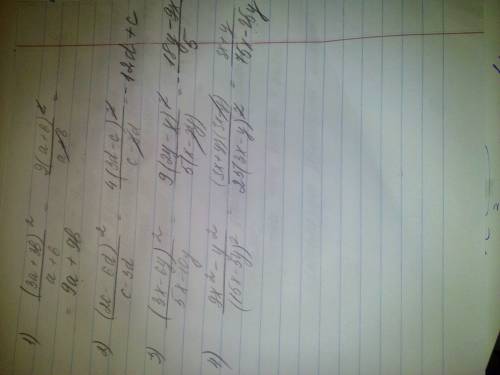 1) (3a+3b)²/(a+b) = 9(a+b)²/(a+b) =
= 9a + 9b
2) (2c-6d)²/(c-3d) = 4(3d-c)²/(c-3d) = -12d+c
3) (3x-6y)²/(5x-10y) = 9(2y-x)²/(5(x-2y)) = -(18y-9x)/5
4) (9x²-y²)/((15x-5y)²) = (3x+y)(3x-y)/(25(3x-y)²) = (3x+y)/(75x-25y)